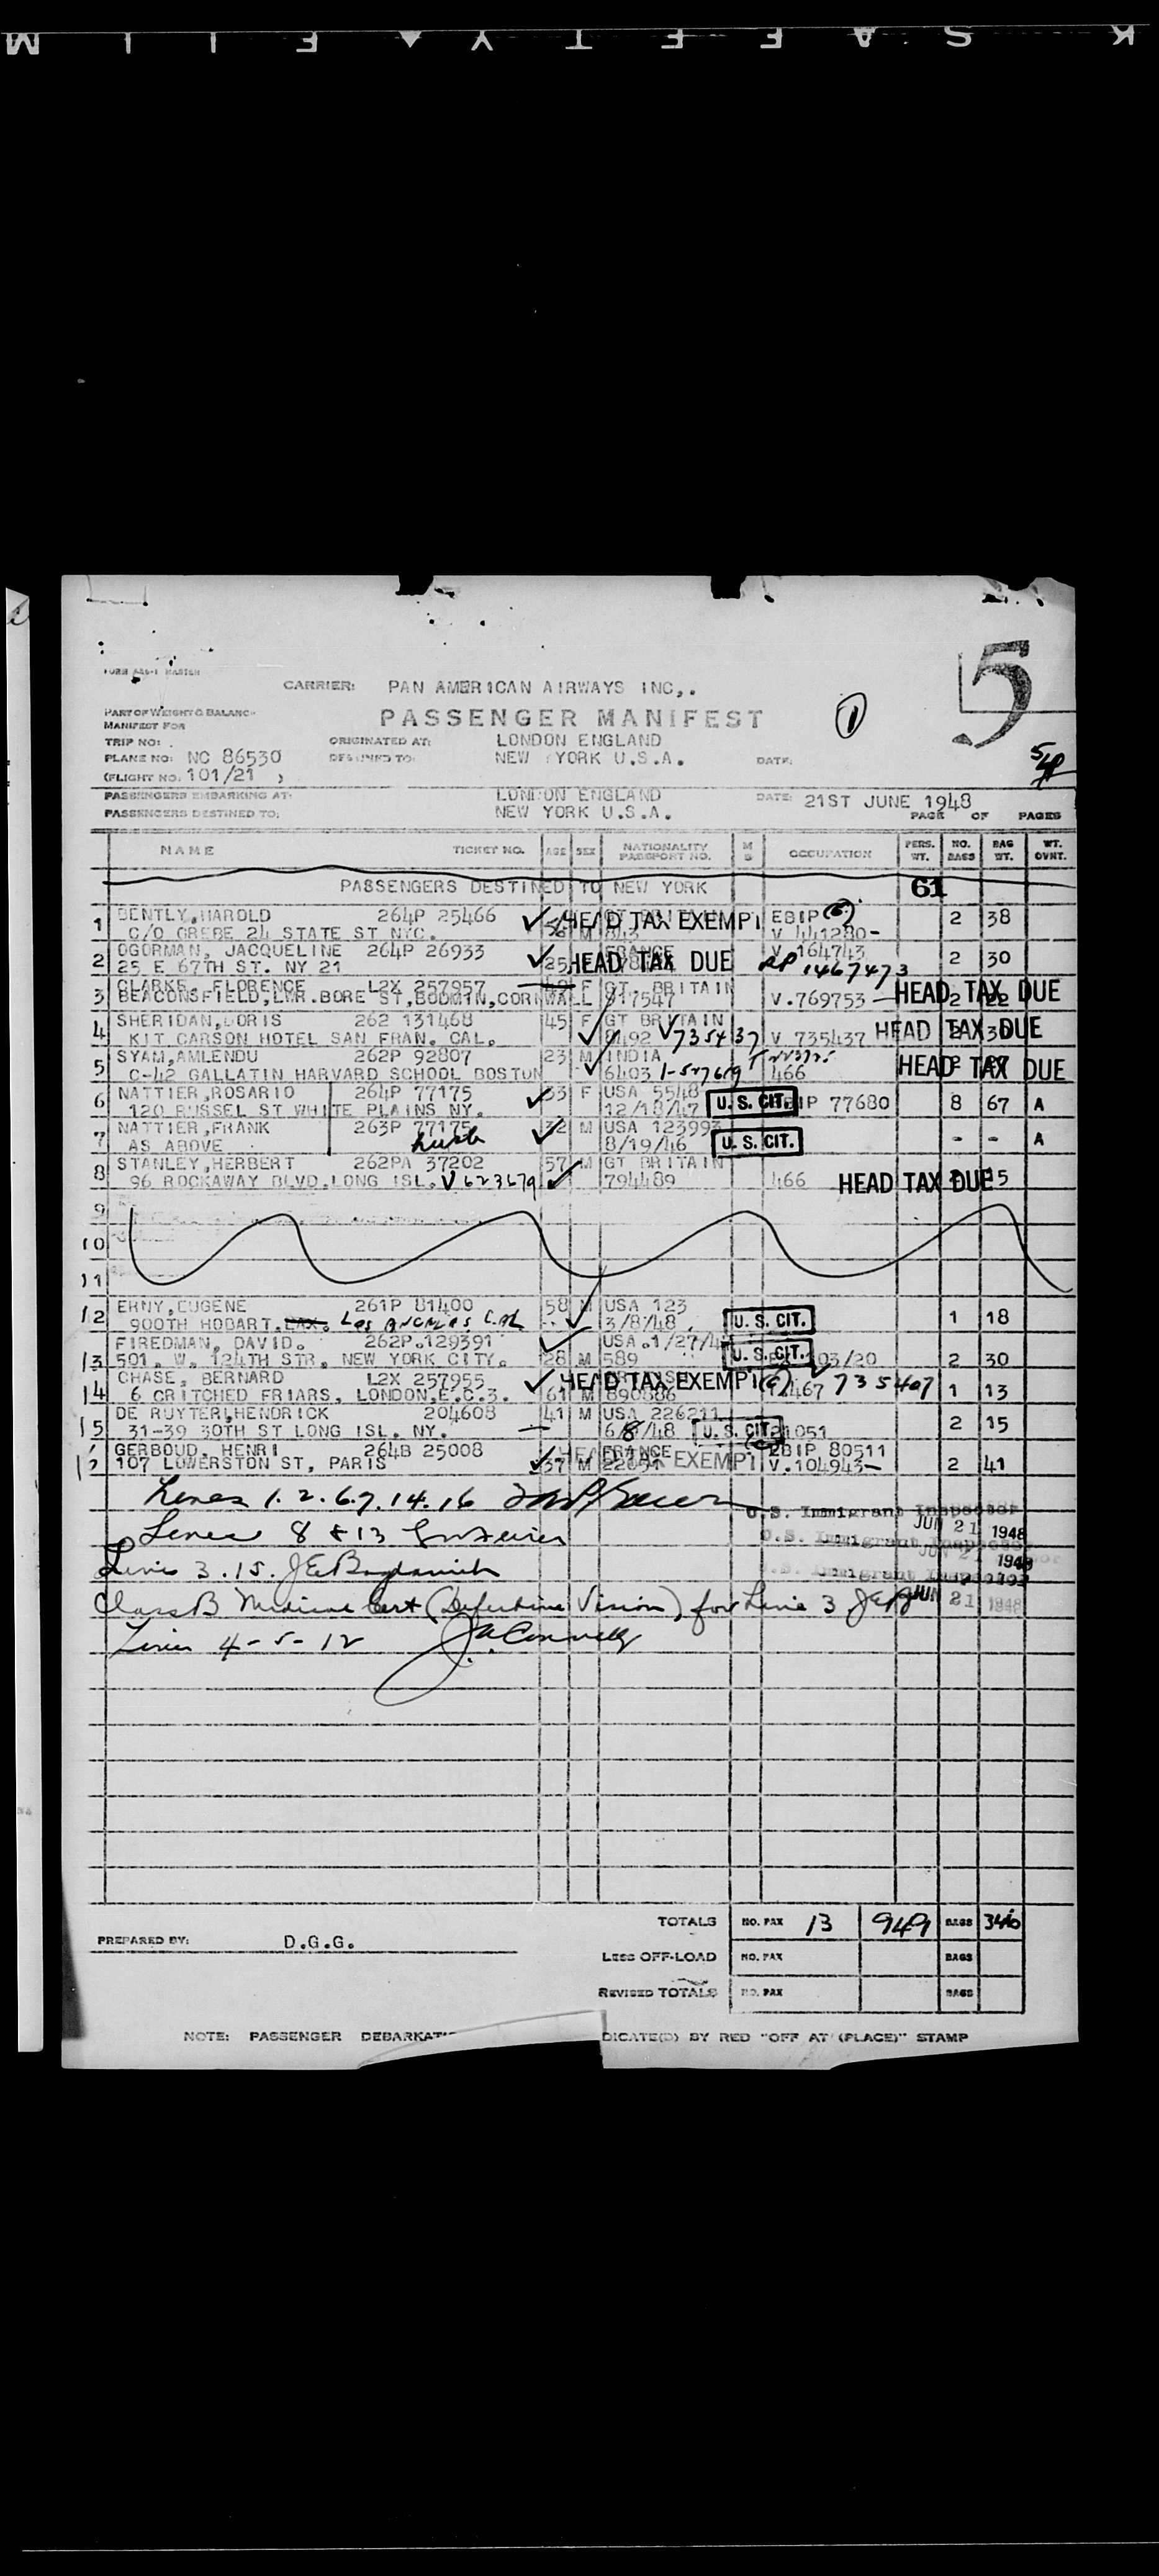 K SAFETY FILM
FORM
CARRIER: PAN AMERICAN AIRWAYS INC,.
5
PART OF WEIGHT & BALANCE
PASSENGER MANIFEST
1
MANIFEST FOR
TRIP NO: ORIGINATED AT: LONDON ENGLAND
PLANE NO: NC 86530 DESTINED TO: NEW YORK U.S.A. DATE:
(FLIGHT NO. 101/21 )
PASSENGERS EMBARKING AT: LONDON ENGLAND DATE: 21ST JUNE 1948
PASSENGERS DESTINED TO: NEW YORK U.S.A. PAGE OF PAGES
NAME TICKET NO. AGE SEX NATIONALITY PASSPORT NO. M S OCCUPATION PERS. WT. NO. BAGS BAG WT. WT. OVNT.
PASSENGERS DESTINED TO NEW YORK 61
1 BENTLY,HAROLD 264P 25466 HEAD TAX EXEMPT EBIP 2 38
C/O GREBE 24 STATE ST NYC. 56 M 843 V 441280-
2 OGORMAN, JACQUELINE 264P 26933 FRANCE V 164743 2 30
25 E 67TH ST. NY 21 25 HEAD TAX DUE RP 1467473
3 CLARKE, FLORENCE L2X 257957 49 F GT. BRITAIN
BEACONSFIELD,LWR.BORE ST,BODMIN,CORNWALL 917547 V.769753 HEAD TAX DUE 2 22
4 SHERIDAN,DORIS 262 131468 45 F GT BRITAIN
KIT CARSON HOTEL SAN FRAN. CAL. 8492 V735437 V 735437 HEAD TAX DUE
5 SYAM,AMLENDU 262P 92807 23 M INDIA
C-42 GALLATIN HARVARD SCHOOL BOSTON 6403 466 HEAD TAX DUE
6 NATTIER,ROSARIO 264P 77175 33 F USA 5548
120 RUSSEL ST WHITE PLAINS NY. 12/18/47 U.S. CIT. 77680 8 67 A
7 NATTIER,FRANK 263P 77175 32 M USA 123993
AS ABOVE 8/19/46 U.S. CIT. - - A
8 STANLEY,HERBERT 262PA 37202 57 M GT BRITAIN
96 ROCKAWAY BLVD.LONG ISL. V623679 794489 466 HEAD TAX DUE
9
10
11
12 ERNY,EUGENE 261P 81400 58 M USA 123
900TH HOBART. LAX. LOS ANGELES CAL 3/8/48 U.S. CIT. 1 18
FIREDMAN, DAVID. 262P.129391 USA.1/27/4
13 501. W. 124TH STR. NEW YORK CITY. 28 M 589 U.S. CIT. 03/20 2 30
CHASE, BERNARD L2X 257955 HEAD TAX EXEMPT
14 6 CRITCHED FRIARS, LONDON,E.C.3. 61 M 890886 735407 1 13
DE RUYTER,HENDRICK 204608 41 M USA 226211
15 31-39 30TH ST LONG ISL. NY. 6/8/48 U.S. CIT. 21051 2 15
GERBOUD, HENRI 264B 25008 FRANCE HEAD TAX EXEMPT EBIP 80511
107 LOWERSTON ST, PARIS 37 M V.104943- 2 41
Lines 1. 2. 6. 7. 14. 16
U.S. Immigrant Inspector
JUN 21 1948
Lines 8 & 13
U.S. Immigrant Inspector
JUN 21 1948
Lines 3. 15.
U.S. Immigrant Inspector
Class B Medical Cert (Defective Vision) for Line 3 JUN 21 1948
Lines 4-5-12 J.A. Connelly
TOTALS NO. PAX 13 949 BAGS 340
PREPARED BY: D.G.G.
LESS OFF-LOAD NO. PAX BAGS
REVISED TOTALS NO. PAX BAGS
NOTE: PASSENGER DEBARKAT DICATE(D) BY RED "OFF AT (PLACE)" STAMP